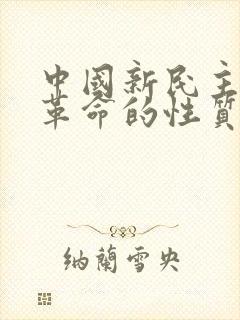 中國新民主
革命的性質
納蘭雪央